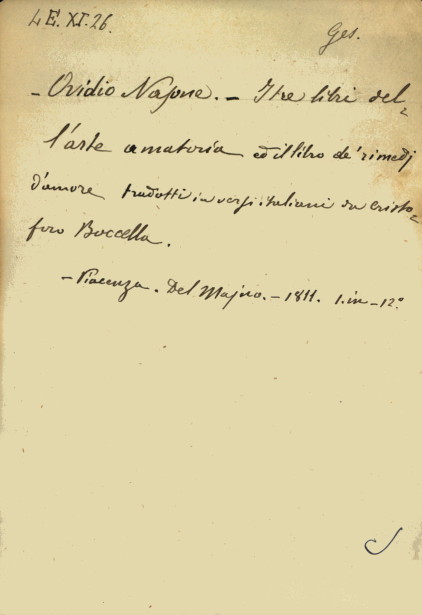 4E.XI.26.
Ges.
- Ovidio Nasone. - I tre libri del-
l'arte amatoria ed il libro de' rimedj
d'amore tradotti in versi italiani da Cristo-
foro Boccella.
- Piacenza. Del Majno. - 1811. 1. in - 12°